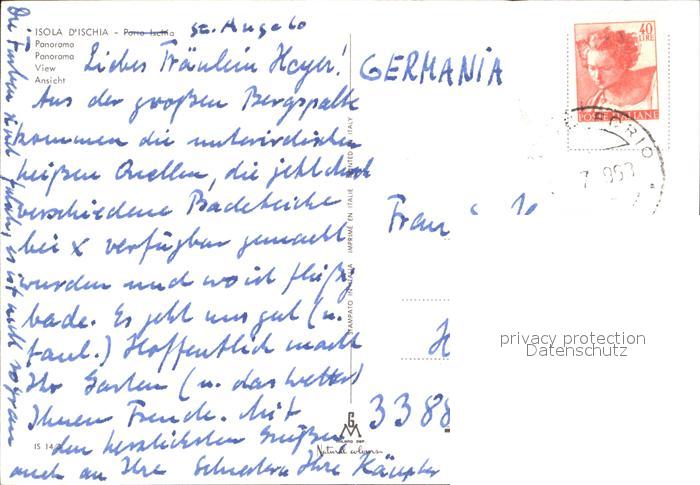 ISOLA D'ISCHIA - Porto Ischia St. Angelo
Panorama
Panorama
View
Ansicht
Liebes Fräulein Heyer!
Aus der großen Bergspalte
kommen die unterirdischen
heißen Quellen, die jetzt durch
verschiedene Badeteiche
bei x verfügbar gemacht
wurden und wo ich fleißig
bade. Es geht uns gut (u.
faul.) Hoffentlich macht
Ihr Garten (u. das Wetter)
Ihnen Freude. Mit
den herzlichsten Grüßen
auch an Ihre Schwestern Ihre
Die Farben sind falsch, es ist nicht so grau
IS 14
STAMPATO IN ITALIA IMPRIMÉ EN ITALIE PRINTED IN ITALY
Natural colours
GERMANIA
40
LIRE
POSTE ITALIANE
FORIO
Frau
H
3388
privacy protection
Datenschutz